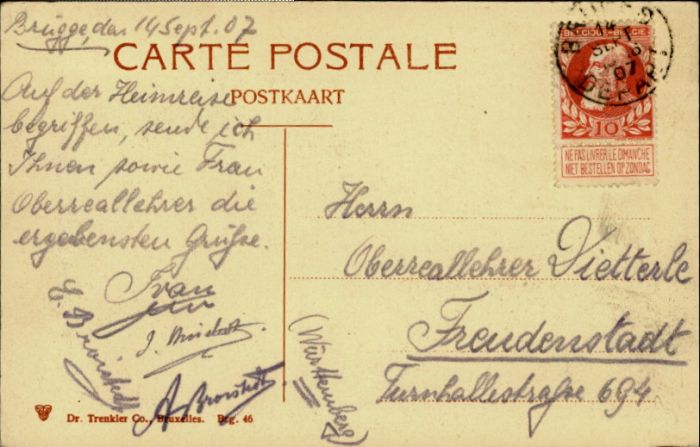 Brügge, den 14 Sept. 07
CARTE POSTALE
POSTKAART
Auf der Heimreise
begriffen, sende ich
Ihnen sowie Frau
Oberreallehrer die
ergebensten Grüße.
A. Broistedt.
E. Broistedt
BELGIQUE-BELGIE
10
NE PAS LIVRER LE DIMANCHE
NIET BESTELLEN OP ZONDAG
14
SEPT
07
DEPART
Herrn
Oberreallehrer Dietterle
Freudenstadt
Turnhallestraße 694
(Württemberg)
Dr. Trenkler Co., Bruxelles. Brg. 46